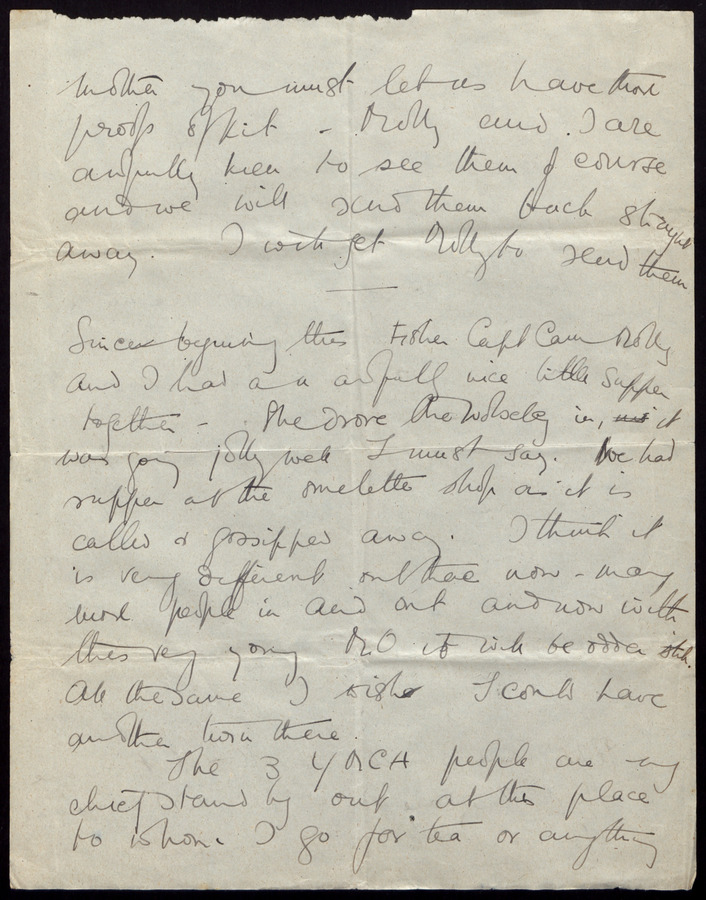 Mother you must let us have those
proofs of Kit - Molly and I are
awfully keen to see them of course
and we will send them back straight
away. I will get Molly to send them
Since beginning this Fisher Capt Cam Molly
and I had a awfully nice little supper
together - She drove the Wolseley in, it
was going jolly well I must say. We had
supper at the omelette shop as it is
called & gossipped away. I think it
is very different out there now - many
more people in and out and now with
this very young MO it will be odder still.
All the same I wish I could have
another turn there.
The 3 YMCA people are my
chief stand by out at this place
to whom I go for tea or anything